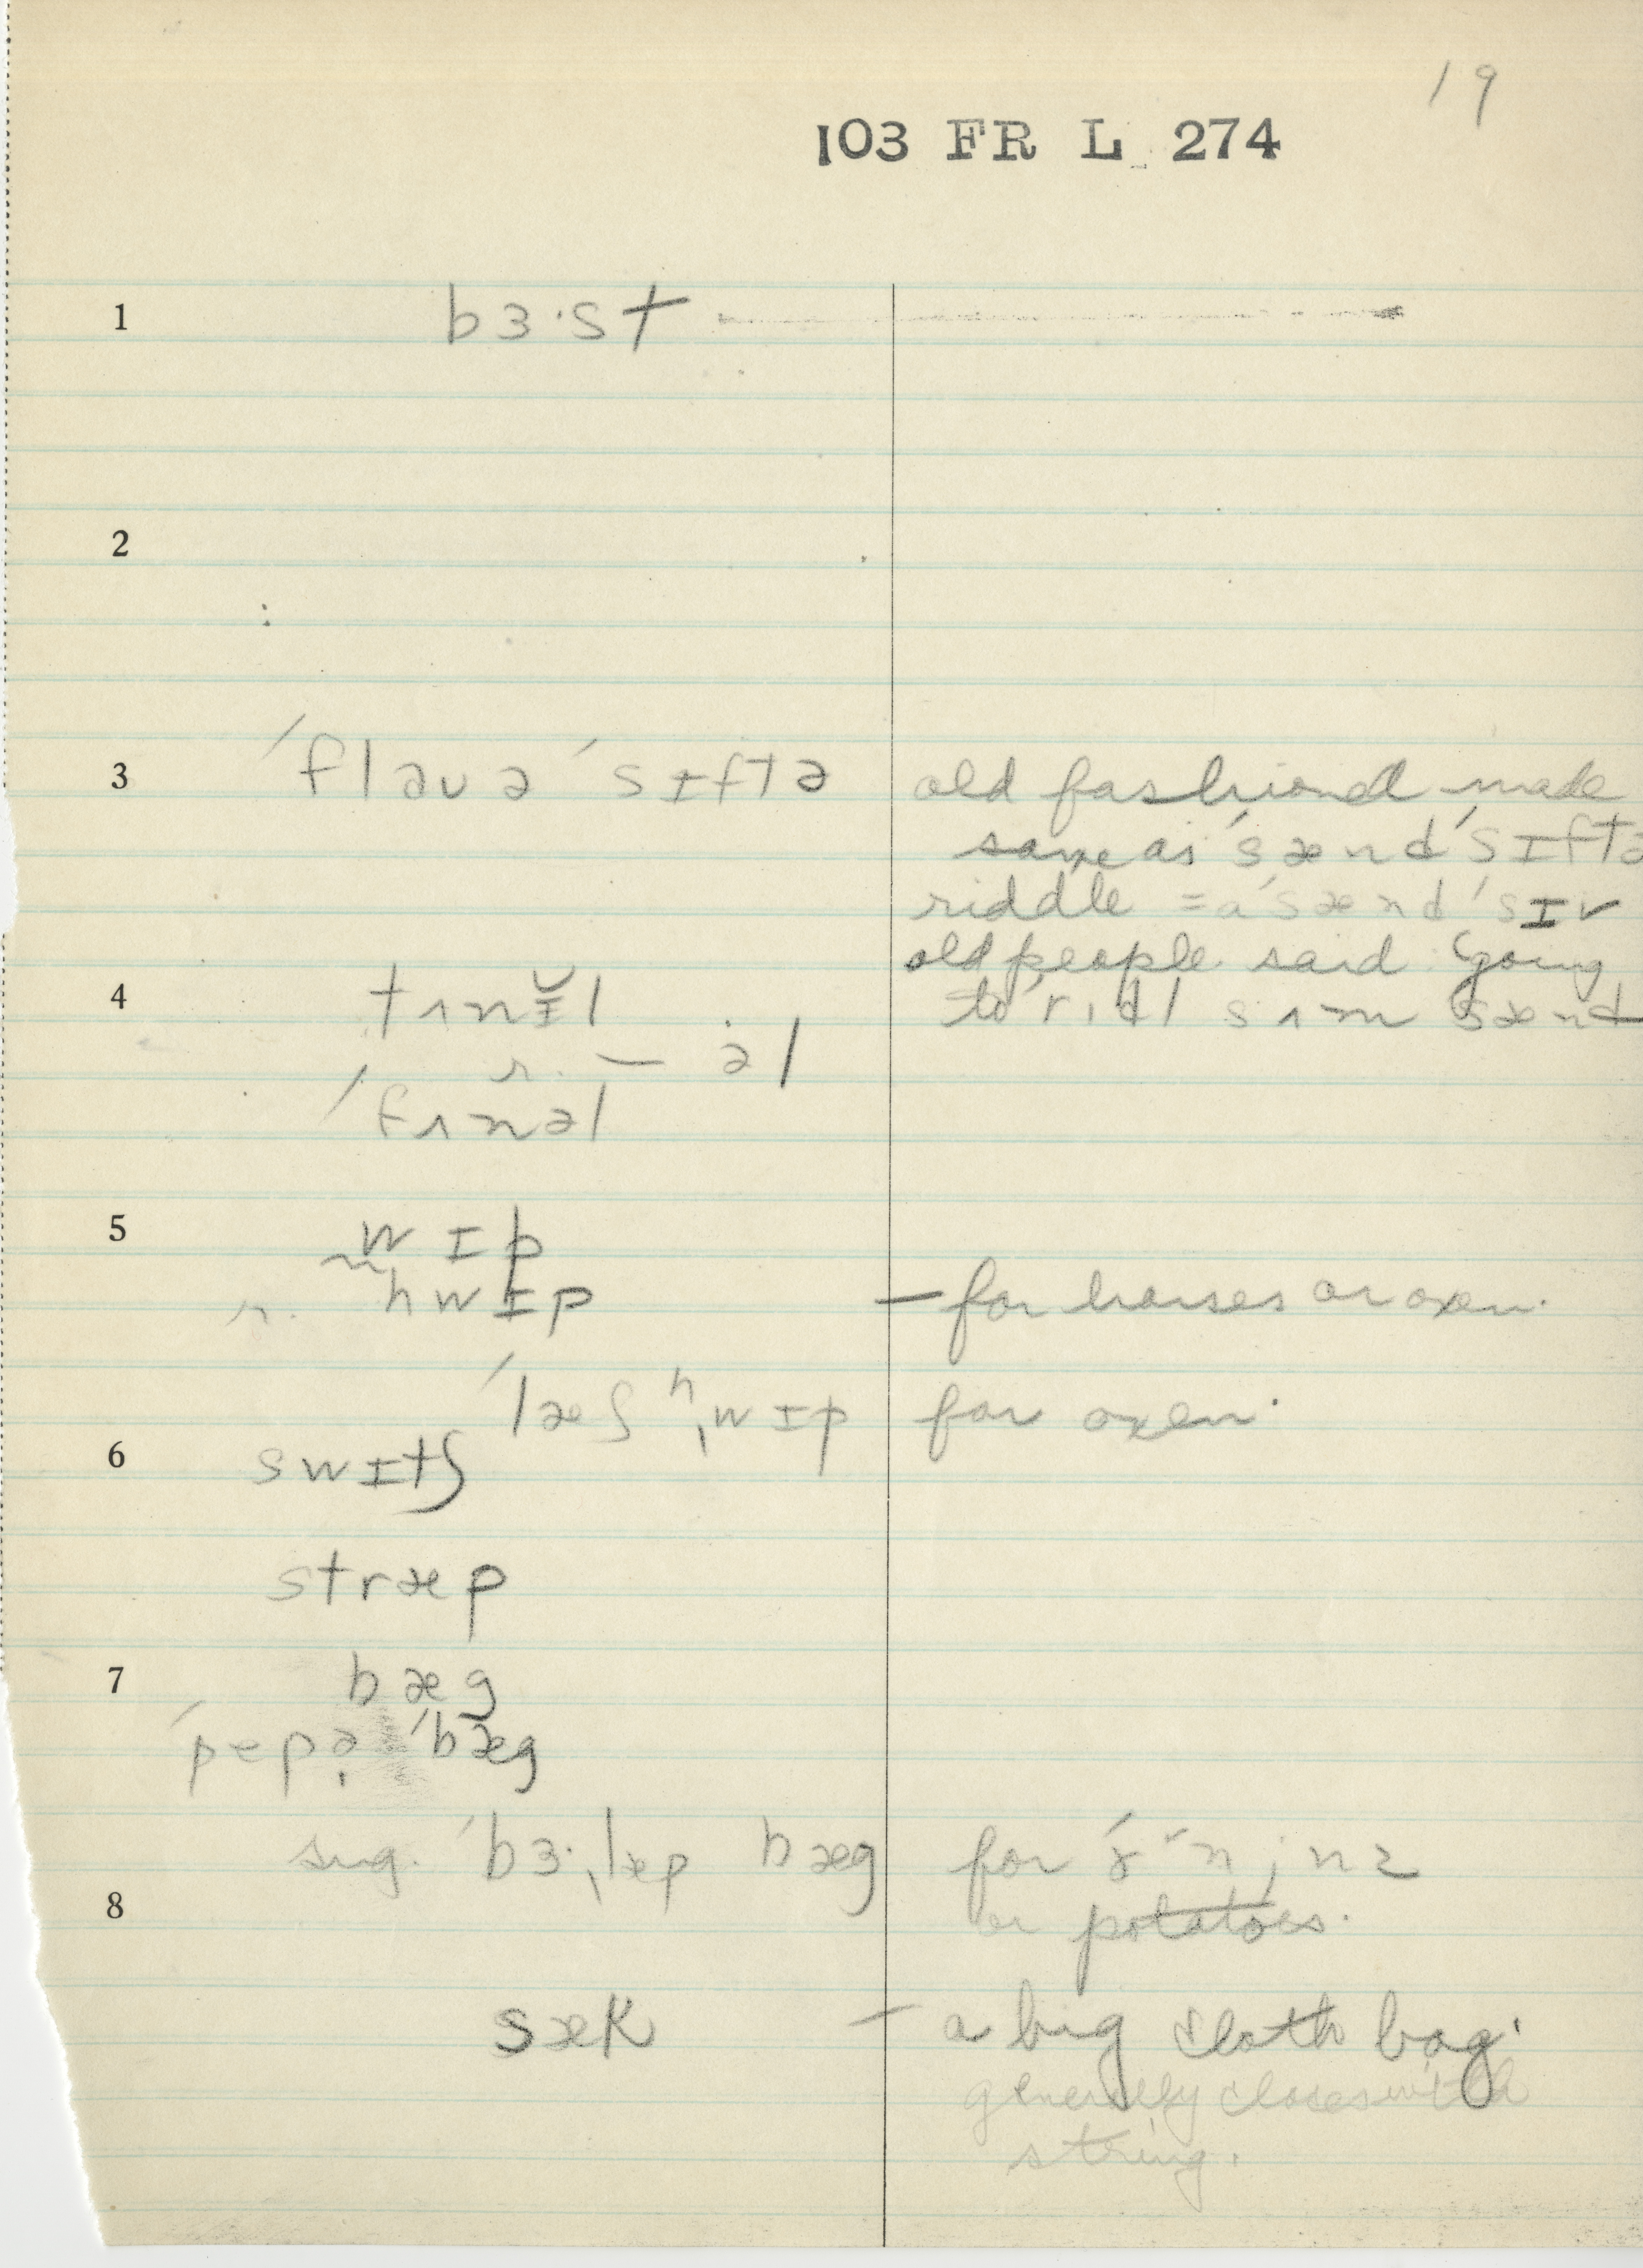 19
103 FR L 274
1 bɜ·st
2
3 ´flaʊə ´sɪftə old fashioned made
same as ´sænd´sɪftə
riddle = a ´sænd´sɪv
old people said going
to rɪdl sʌm sænd
4 tʌnɪ̆l
r. — əl
´fʌnəl
5 wɪp
r. hwɪp — for horses or oxen.
´læʃ ʰˌwɪp for oxen.
6 swɪtʃ
stræp
7 bæg
´pepə ´bæg
sug. ´bɜ·ˌlæp bæg for ´ɤnjnz
8 or potatoes.
sæk — a big cloth bag.
generally closes with
string.